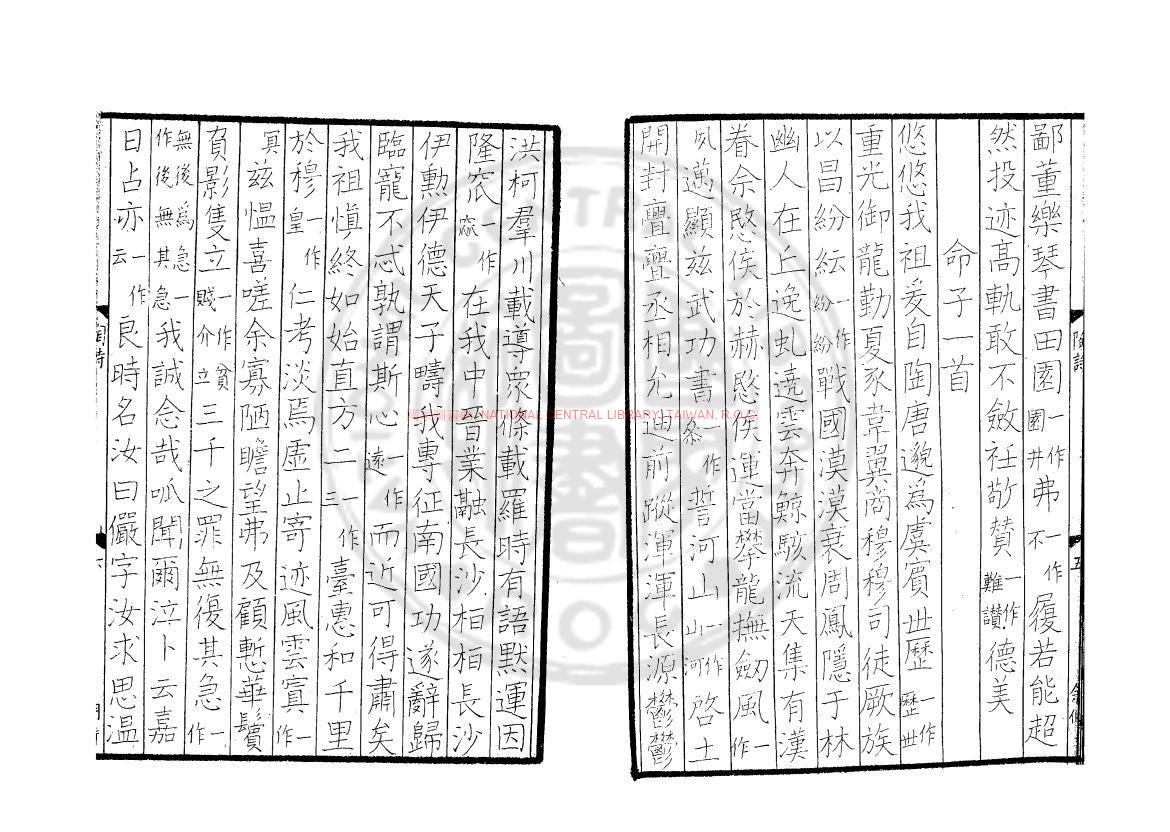 鄙董樂琴書田園一作園井弗一作不履若能超
然投迹高軌敢不斂衽敬贊一作難讚德美
命子一首
悠悠我祖爰自陶唐邈爲虞賓世歷一作歷世
重光御龍勤夏豕韋翼商穆穆司徒厥族
以昌紛紜一作紛紛戰國漠漠衰周鳳隱于林
幽人在丘逸虬遶雲奔鯨駭流天集有漢
眷余愍侯於赫愍侯運當攀龍撫劔風一作
夙邁顯茲武功書一作參誓河山一作山河啓土
開封亹亹丞相允迪前蹤渾渾長源鬱鬱
洪柯羣川載導衆條載羅時有語默運因
隆窊一作窳在我中晉業融長沙桓桓長沙
伊勳伊德天子疇我專征南國功遂辭歸
臨寵不忒孰謂斯心一作遠而近可得肅矣
我祖慎終如始直方二一作三臺惠和千里
於穆一作皇仁考淡焉虛止寄迹風雲寘一作
冥茲愠喜嗟余寡陋瞻望弗及顧慙華鬢
負影隻立一作貧賤介立三千之罪無復其急一作
無後爲急一作後無其急我誠念哉呱聞爾泣卜云嘉
日占亦一作云良時名汝曰儼字汝求思温
陶詩
五
陶詩
六
NATIONAL CENTRAL LIBRARY, TAIWAN, R.O.C